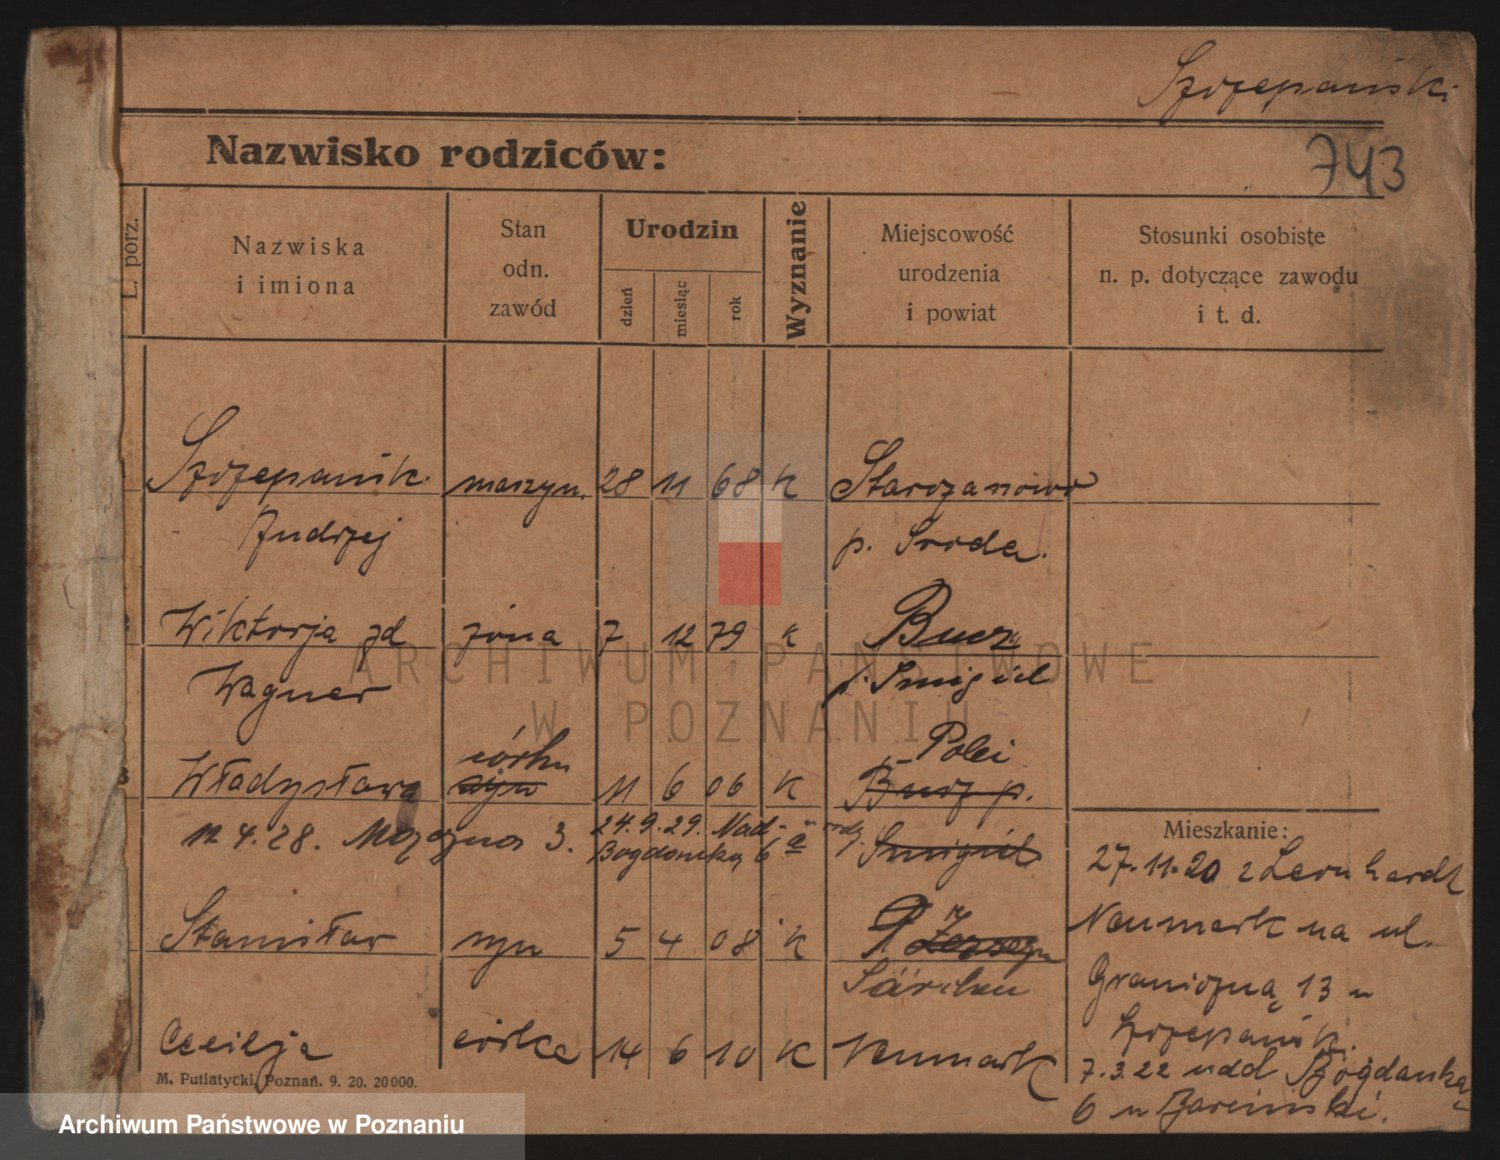 Szczepański
743
Nazwisko rodziców:
L. porz.
Nazwiska
i imiona
Stan
odn.
zawód
Urodzin
dzień
miesiąc
rok
Wyznanie
Miejscowość
urodzenia
i powiat
Stosunki osobiste
n. p. dotyczące zawodu
i t. d.
Szczepanik maszyn. 28 11 68 K Starczanowo
Andrzej p. Środa.
Wiktorja zd żona 7 12 79 K Bucz
Wagner p. Śmigiel
córka
Władysława syn 11 6 06 K Bucz p.
12 4. 28. 3. 24. 9. 29. Nad-
Bogdanką 6a Śmigiel
Mieszkanie:
27. 11. 20 z Leonhardt
Stanisław syn 5 4 08 K
Neumark na ul.
Graniczną 13 u
Szczepanik.
Cecilja córka 14 6 10 K Neumark
7. 3. 22 nad Bogdanką
6 u
M. Putiatycki, Poznań. 9. 20. 20000.
ARCHIWUM PAŃSTWOWE
W POZNANIU
Archiwum Państwowe w Poznaniu